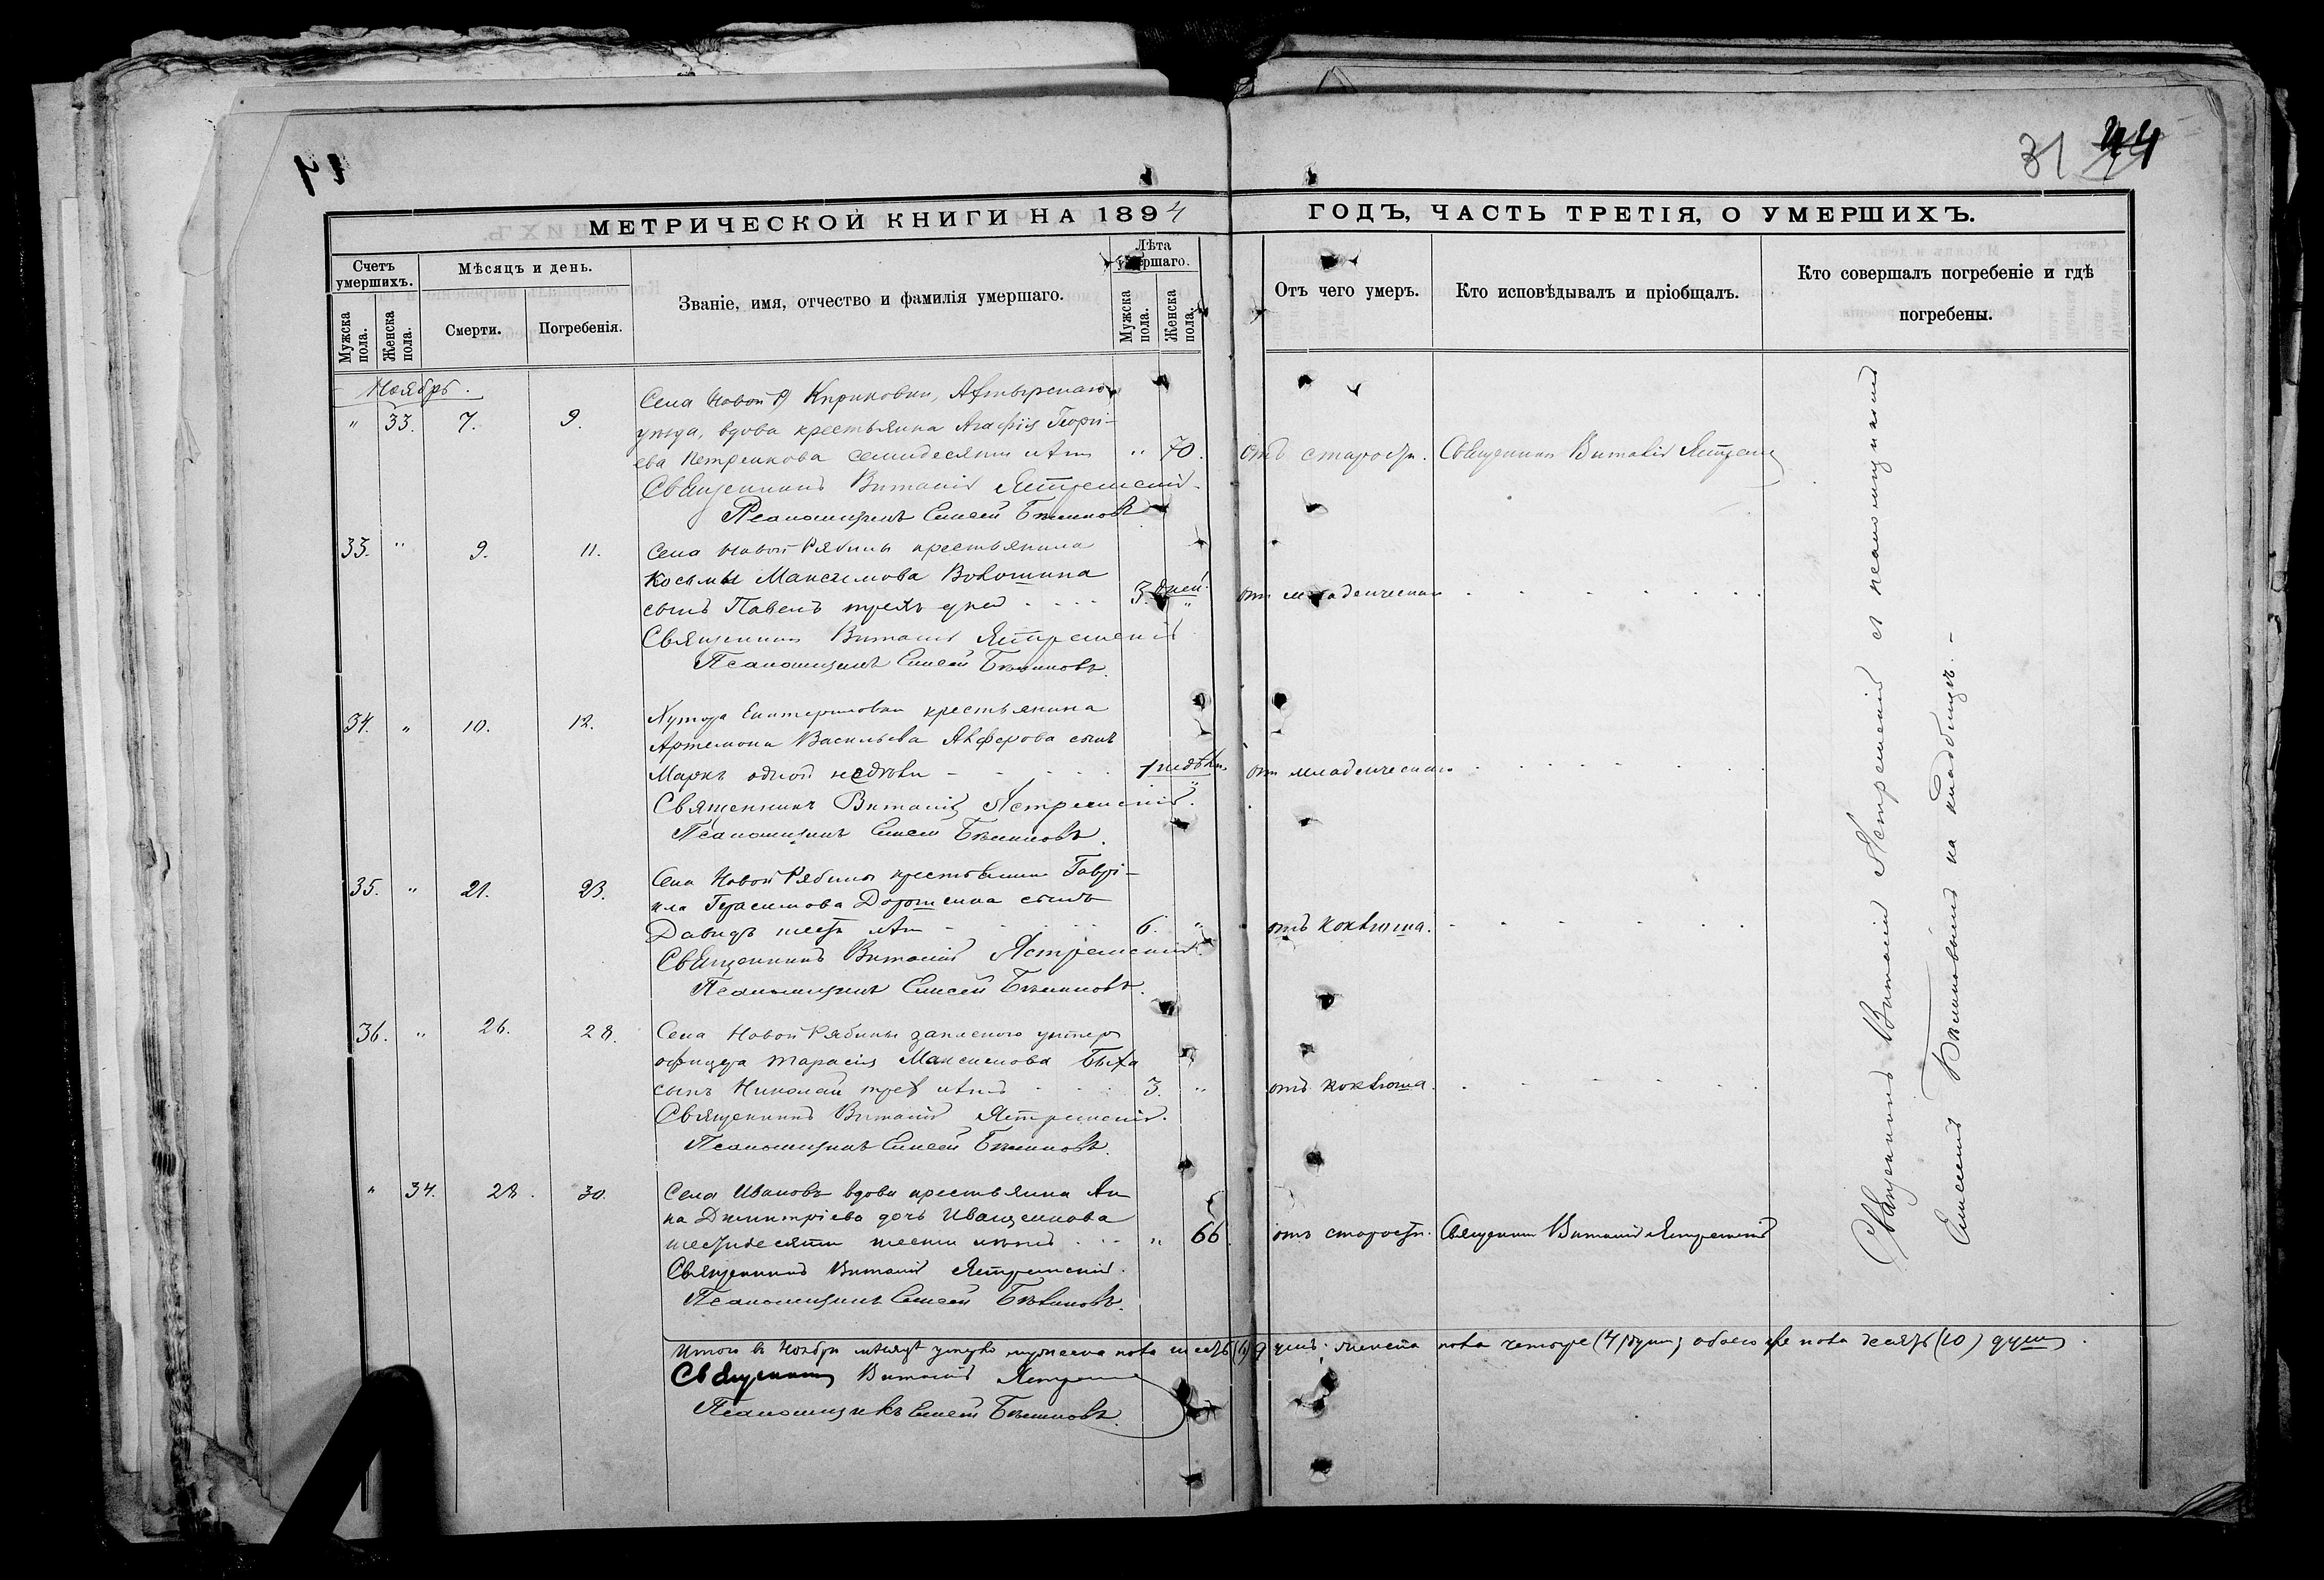 31 44
МЕТРИЧЕСКОЙ КНИГИ НА 1894 ГОДЪ, ЧАСТЬ ТРЕТІЯ, О УМЕРШИХЪ.
Счетъ умершихъ.
Мужска пола.
Женска пола.
Мѣсяцъ и день.
Смерти.
Погребенія.
Званіе, имя, отчество и фамилія умершаго.
Лѣта умершаго.
Мужска пола.
Женска пола.
Отъ чего умеръ.
Кто исповѣдывалъ и пріобщалъ.
Кто совершалъ погребеніе и гдѣ
погребены.
Ноябрь.
" 33. 7. 9.
Села Новой
уѣзда, вдова крестьянка Агафія Георгі-
ева Петренкова семидесяти лѣтъ " 70. отъ старости. Священникъ Виталій
Священникъ Виталій Ястремскій.
Псаломщикъ Елисей
33. " 9. 11. Села Новой Рябины крестьянина
Косьмы Максимова Волошина
сынъ Павелъ трехъ дней 3 дней. " отъ младенческой
Священникъ Виталій Ястремскій
Псаломщикъ Елисей
34. " 10. 12. Хутора Екатериновки крестьянина
Артемона Васильева Алферова сынъ
Маркъ одной недѣли 1 недѣли " отъ младенческой
Священникъ Виталій Ястремскій.
Псаломщикъ Елисей
35. " 21. 23. Села Новой Рябины крестьянина Гаврі-
ила Герасимова Дорошенка сынъ
Давидъ шести лѣтъ 6. " отъ коклюша.
Священникъ Виталій Ястремскій.
Псаломщикъ Елисей
36. " 26. 28. Села Новой Рябины запасного унтеръ
офицера Тарасія Максимова
сынъ Николай трехъ лѣтъ 3. " отъ коклюша.
Священникъ Виталій Ястремскій.
Псаломщикъ Елисей
" 34. 28. 30. Села вдова крестьянка Ан
на Димитріева дочь Иващенкова
шестидесяти шести лѣтъ " 66. отъ старости. Священникъ Виталій Ястремскій
Священникъ Виталій Ястремскій.
Псаломщикъ Елисей
Священникъ Виталій Ястремскій съ псаломщикомъ
Елисеемъ на кладбищѣ. –
Итого въ Ноябрѣ мѣсяцѣ умерло мужеска пола шесть (6) душъ; женска пола четыре (4) души, обоего же пола десять (10) душъ.
Священникъ Виталій
Псаломщикъ Елисей